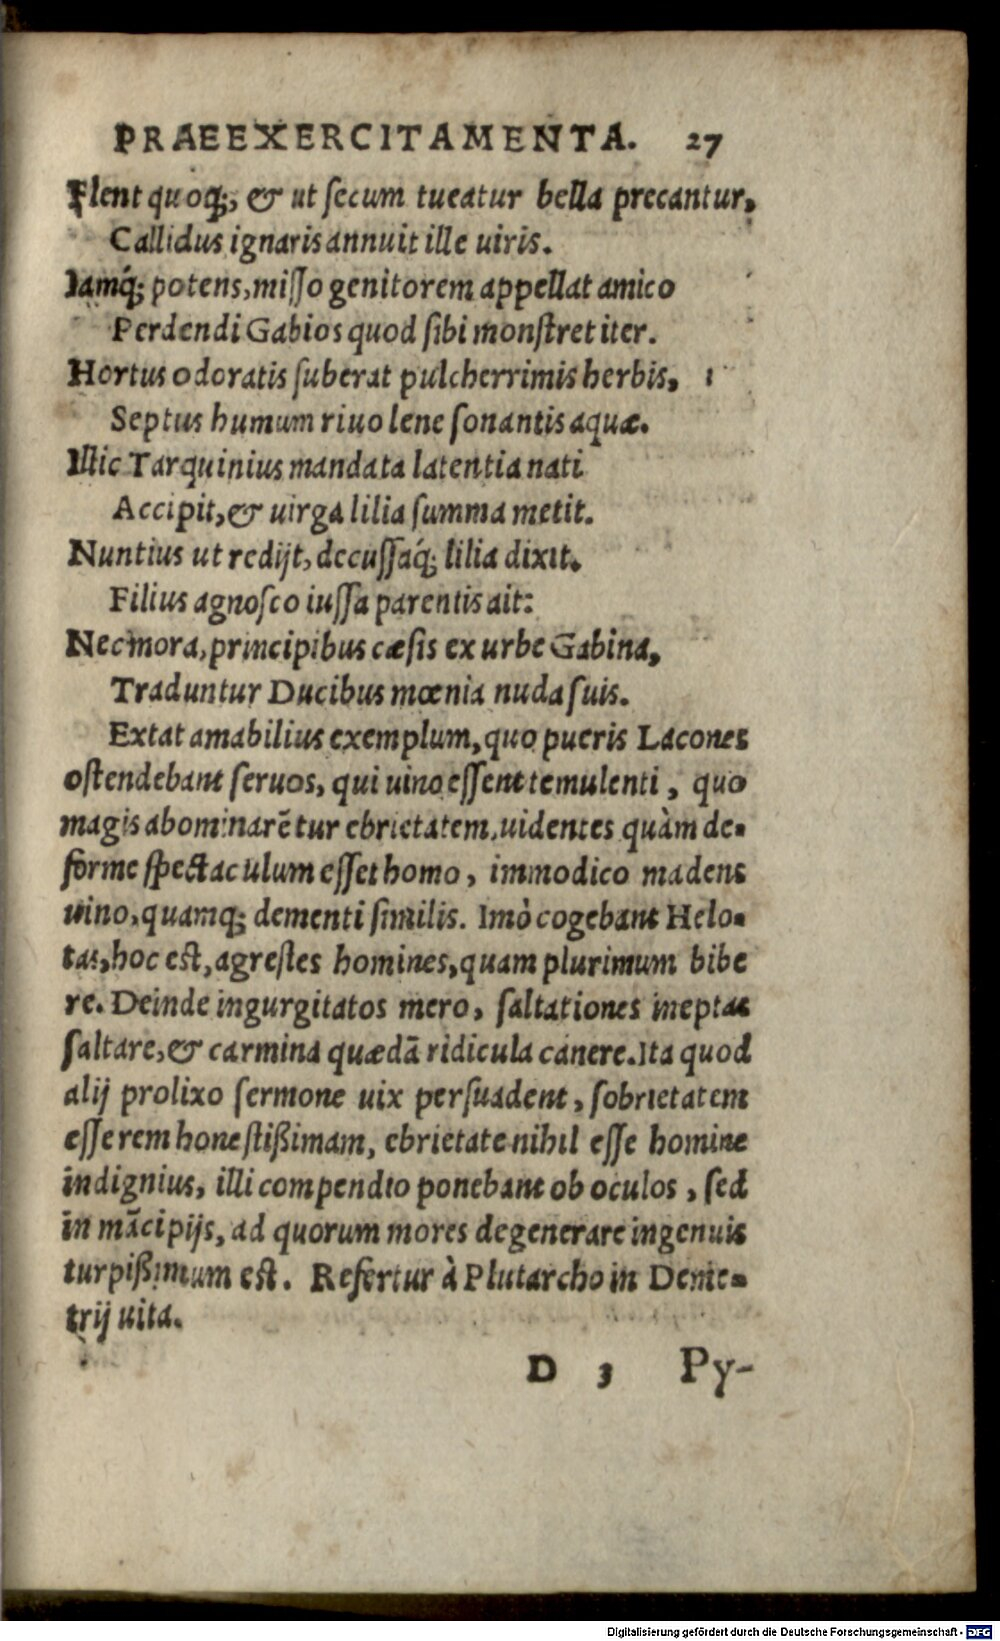 PRAEEXERCITAMENTA. 27
Flent quoq;, & ut secum tueatur bella precantur,
Callidus ignaris annuit ille uiris.
Iamq́; potens, misso genitorem appellat amico
Perdendi Gabios quod sibi monstret iter.
Hortus odoratis suberat pulcherrimis herbis,
Septus humum riuo lene sonantis aquæ.
Illic Tarquinius mandata latentia nati
Accipit, & uirga lilia summa metit.
Nuntius ut redijt, decussaq́; lilia dixit.
Filius agnosco iussa parentis ait:
Nec mora, principibus cæsis ex urbe Gabina,
Traduntur Ducibus mœnia nuda suis.
Extat amabilius exemplum, quo pueris Lacones
ostendebant seruos, qui uino essent temulenti, quo
magis abominarẽtur ebrietatem, uidentes quàm de-
forme spectaculum esset homo, immodico madens
uino, quamq; dementi similis. Imò cogebant Helo-
tas, hoc est, agrestes homines, quam plurimum bibe
re. Deinde ingurgitatos mero, saltationes ineptas
saltare, & carmina quædã ridicula canere. Ita quod
alij prolixo sermone uix persuadent, sobrietatem
esse rem honestißimam, ebrietate nihil esse homine
indignius, illi compendio ponebant ob oculos, sed
in mãcipijs, ad quorum mores degenerare ingenuis
turpißimum est. Refertur à Plutarcho in Deme-
trij uita.
D 3 Py-
Digitalisierung gefördert durch die Deutsche Forschungsgemeinschaft - DFG